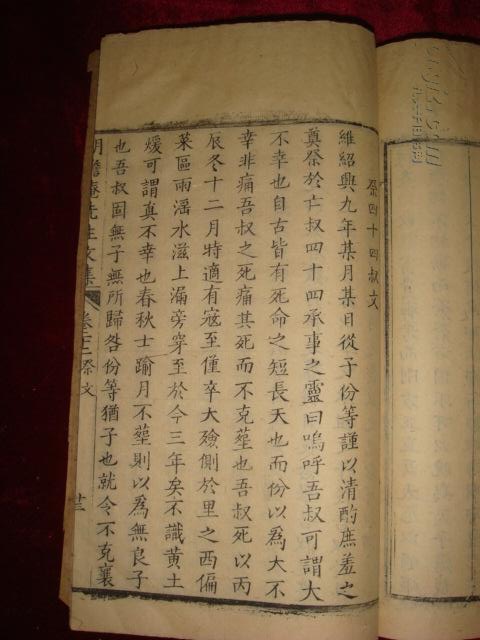 祭四十四叔文
維紹興九年某月某日從子份等謹以清酌庶羞之
奠祭於亡叔四十四承事之靈曰嗚呼吾叔可謂大
不幸也自古皆有死命之短長天也而份以為大不
幸非痛吾叔之死痛其死而不克塟也吾叔死以丙
辰冬十二月特適有寇至僅卒大殮側於里之西偏
菜區雨滛水滋上漏旁穿至於今三年矣不識黄土
煖可謂真不幸也春秋士踰月不塟則以為無良子
也吾叔固無子無所歸咎份等猶子也就令不克襄
胡澹菴先生文集 卷二十二 祭文